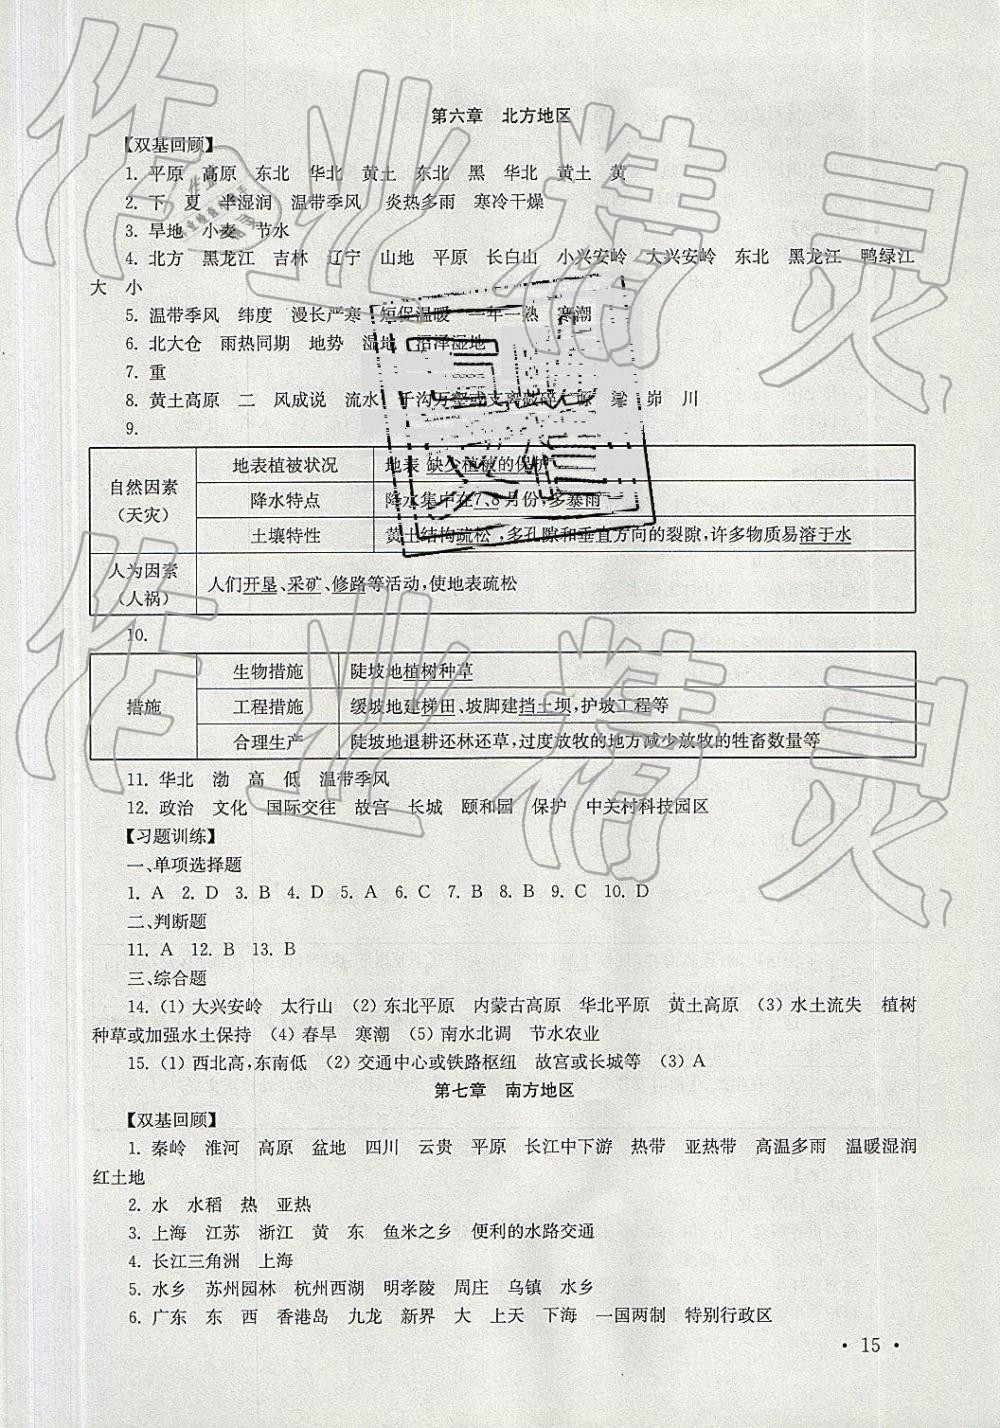 第六章 北方地区
【双基回顾】
1. 平原 高原 东北 华北 黄土 东北 黑 华北 黄土 黄
2. 下 夏 半湿润 温带季风 炎热多雨 寒冷干燥
3. 旱地 小麦 节水
4. 北方 黑龙江 吉林 辽宁 山地 平原 长白山 小兴安岭 大兴安岭 东北 黑龙江 鸭绿江
大 小
5. 温带季风 纬度 漫长严寒 短促温暖 一年一熟 寒潮
6. 北大仓 雨热同期 地势 湿地 沼泽湿地
7. 重
8. 黄土高原 二 风成说 流水 千沟万壑或支离破碎 塬 梁 峁 川
9.
自然因素(天灾) 地表植被状况 地表 缺少植被的保护
降水特点 降水集中在7、8月份,多暴雨
土壤特性 黄土结构疏松,多孔隙和垂直方向的裂隙,许多物质易溶于水
人为因素(人祸) 人们开垦、采矿、修路等活动,使地表疏松
10.
措施 生物措施 陡坡地植树种草
工程措施 缓坡地建梯田、坡脚建挡土坝,护坡工程等
合理生产 陡坡地退耕还林还草,过度放牧的地方减少放牧的牲畜数量等
11. 华北 渤 高 低 温带季风
12. 政治 文化 国际交往 故宫 长城 颐和园 保护 中关村科技园区
【习题训练】
一、单项选择题
1. A 2. D 3. B 4. D 5. A 6. C 7. B 8. B 9. C 10. D
二、判断题
11. A 12. B 13. B
三、综合题
14. (1) 大兴安岭 太行山 (2) 东北平原 内蒙古高原 华北平原 黄土高原 (3) 水土流失 植树
种草或加强水土保持 (4) 春旱 寒潮 (5) 南水北调 节水农业
15. (1) 西北高,东南低 (2) 交通中心或铁路枢纽 故宫或长城等 (3) A
第七章 南方地区
【双基回顾】
1. 秦岭 淮河 高原 盆地 四川 云贵 平原 长江中下游 热带 亚热带 高温多雨 温暖湿润
红土地
2. 水 水稻 热 亚热
3. 上海 江苏 浙江 黄 东 鱼米之乡 便利的水路交通
4. 长江三角洲 上海
5. 水乡 苏州园林 杭州西湖 明孝陵 周庄 乌镇 水乡
6. 广东 东 西 香港岛 九龙 新界 大 上天 下海 一国两制 特别行政区
· 15 ·
作业精灵
作业精灵